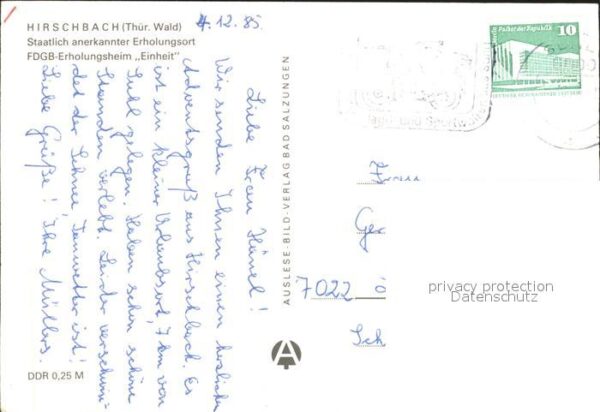 HIRSCHBACH (Thür. Wald)
Staatlich anerkannter Erholungsort
FDGB-Erholungsheim „Einheit"
4.12.85
Liebe Frau Hänel!
Wir senden Ihnen einen herzlichen
Adventsgruß aus Hirschbach. Es
ist ein kleiner Urlaubsort, 7 km von
Suhl gelegen. Haben schon schöne
Stunden verlebt. Leider verschwin-
det der Schnee, Tauwetter ist!
Liebe Grüße! Ihre Müllers.
DDR 0,25 M
AUSLESE-BILD-VERLAG BAD SALZUNGEN
Palast der Republik
10
Jagd- und Sportwaffen
Frau
Ger
7022
Sch
privacy protection
Datenschutz